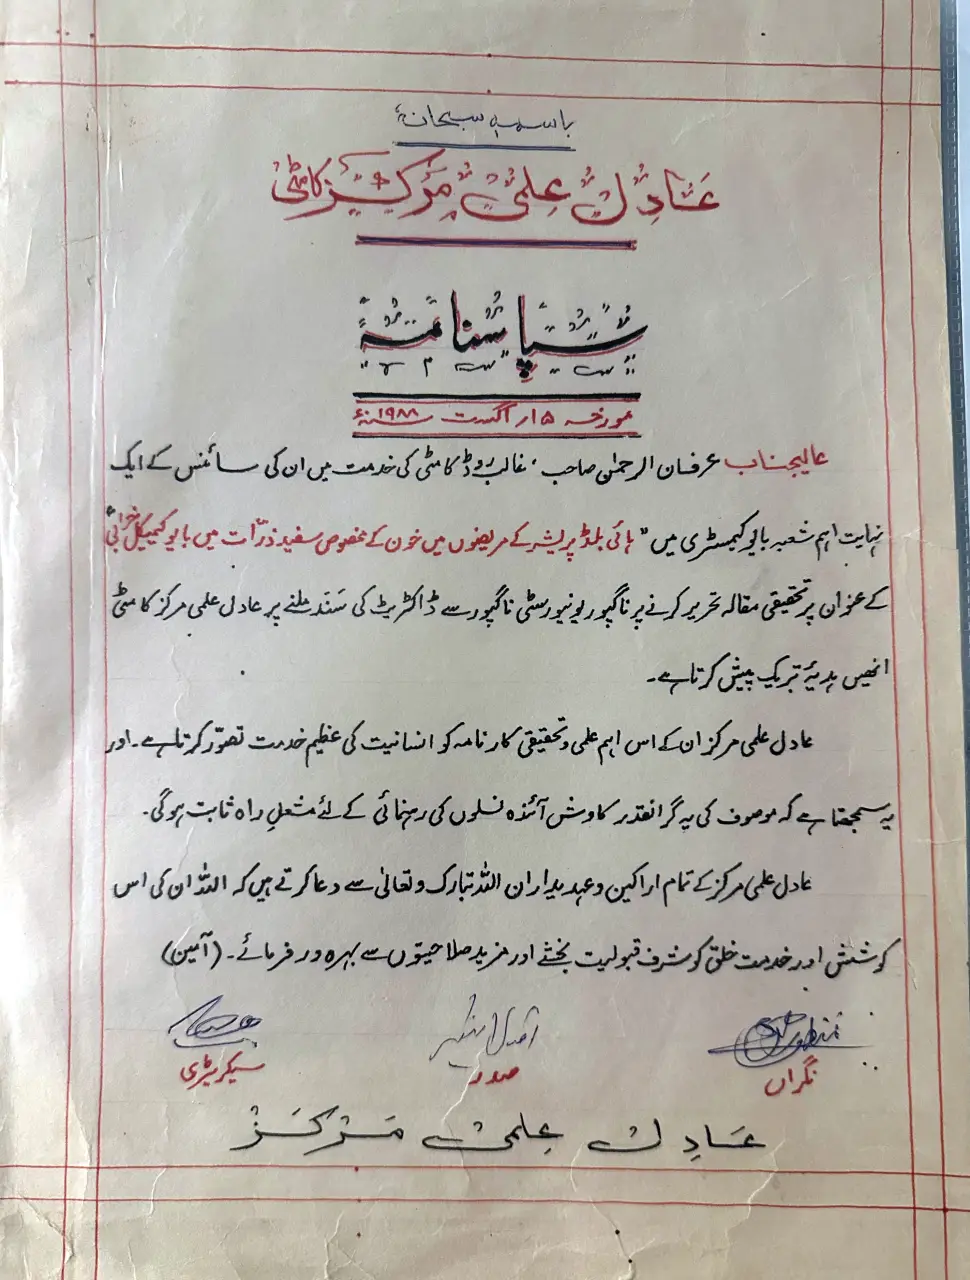 باسمہٖ سبحانہٗ
عادل علمی مرکز کامٹی
سپاسنامہ
مورخہ ۱۵ر اگست ۱۹۸۸ء
عالیجناب عرفان الرحمٰن صاحب، غالب روڈ کامٹی کی خدمت میں ان کی سائنس کے ایک
نہایت اہم شعبہ بایو کیمسٹری میں "ہائی بلڈ پریشر کے مریضوں میں خون کے مخصوص سفید ذرّات میں بایو کیمیکل خرابی"
کے عنوان پر تحقیقی مقالہ تحریر کرنے پر ناگپور یونیورسٹی ناگپور سے ڈاکٹریٹ کی سَند ملنے پر عادل علمی مرکز کامٹی
انھیں ہدیۂ تبریک پیش کرتا ہے۔
عادل علمی مرکز ان کے اس اہم علمی و تحقیقی کارنامہ کو انسانیت کی عظیم خدمت تصوّر کرتا ہے۔ اور
یہ سمجھتا ہے کہ موصوف کی یہ گرانقدر کاوش آئندہ نسلوں کی رہنمائی کے لئے مشعلِ راہ ثابت ہوگی۔
عادل علمی مرکز کے تمام اراکین و عہدیداران اللہ تبارک و تعالیٰ سے دعا کرتے ہیں کہ اللہ ان کی اس
کوشش اور خدمت خلق کو شرف قبولیت بخشے اور مزید صلاحیتوں سے بہرہ ور فرمائے۔ (آمین)
نگراں صدر سیکریٹری
عادل علمی مرکز